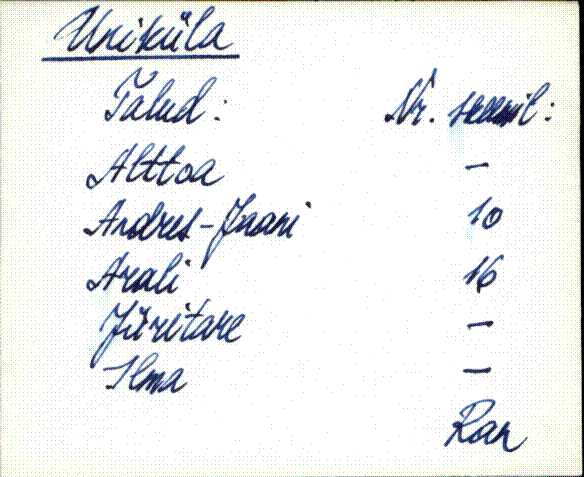 Uniküla
Talud: Nr. skeemil:
Alttoa —
Andres-Jaani 10
Arali 16
Jüritare —
Ilma —
Ran